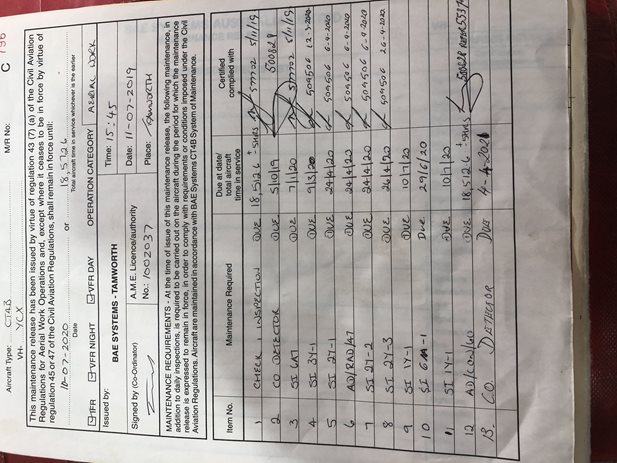 Aircraft Type: CT4B M/R No: C 796
VH- YCX
This maintenance release has been issued by virtue of regulation 43 (7) (a) of the Civil Aviation
Regulations for Aerial Work Operations and, except where it ceases to be in force by virtue of
regulation 45 or 47 of the Civil Aviation Regulations, shall remain in force until:
10-07-2020 or 18,572.6
Date Total aircraft time in service whichever is the earlier
IFR VFR NIGHT VFR DAY OPERATION CATEGORY AERIAL WORK
Issued by: BAE SYSTEMS - TAMWORTH Time: 15:45
Signed by (Co-Ordinator) A.M.E. Licence/authority Date: 11-07-2019
No.: 1002037 Place: TAMWORTH
MAINTENANCE REQUIREMENTS - At the time of issue of this maintenance release, the following maintenance, in
addition to daily inspections, is required to be carried out on the aircraft during the period for which the maintenance
release is expressed to remain in force, in order to comply with requirements or conditions imposed under the Civil
Aviation Regulations. Aircraft are maintained in accordance with BAE Systems CT4B System of Maintenance.
Item No. Maintenance Required Due at date/ total aircraft time in service Certified complied with
1 CHECK 1 INSPECTION DUE 18,512.6 +5HRS 577702 5/11/19
2 CO DETECTOR DUE 5/10/19 500829
3 SI 6A7 DUE 7/1/20 577702 5/11/19
4 SI 3Y-1 DUE 9/3/20 509506 12-3-2020
5 SI 2Y-1 DUE 24/4/20 509506 6-4-2020
6 AD/RAD/47 DUE 24/4/20 509506 6-4-2020
7 SI 2Y-2 DUE 24/4/20 509506 6-4-2020
8 SI 2Y-3 DUE 26/4/20 509506 26-4-2020
9 SI 1Y-1 DUE 10/7/20
10 SI 6M-1 Due 29/6/20
11 SI 1Y-1 DUE 10/7/20
12 AD/CON/60 DUE 18,512.6 +5HRS
13. C.O. DETECTOR DUE 4-4-2021